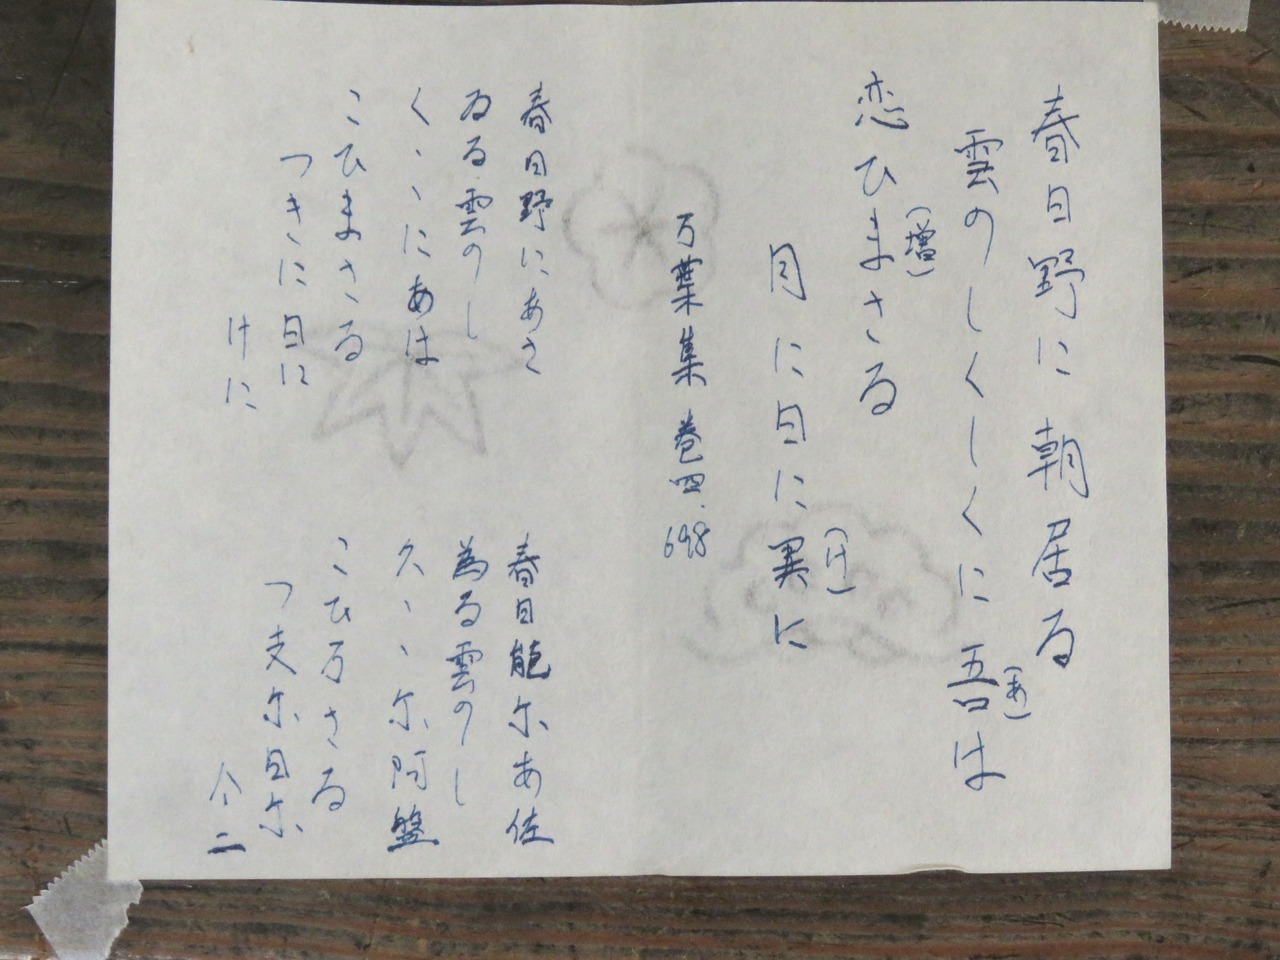 春日野に朝居る
雲のしくしくに吾は
(あ)
恋ひまさる
(増)
月に日に異に
(け)
万葉集 巻四.698
春日野にあさ
ゐる雲のし
くゝゝにあは
こひまさる
つきに日に
けに
春日能尓あ佐
為る雲のし
久ゝゝ尓阿盤
こひ万さる
つ支尓日尓
介二